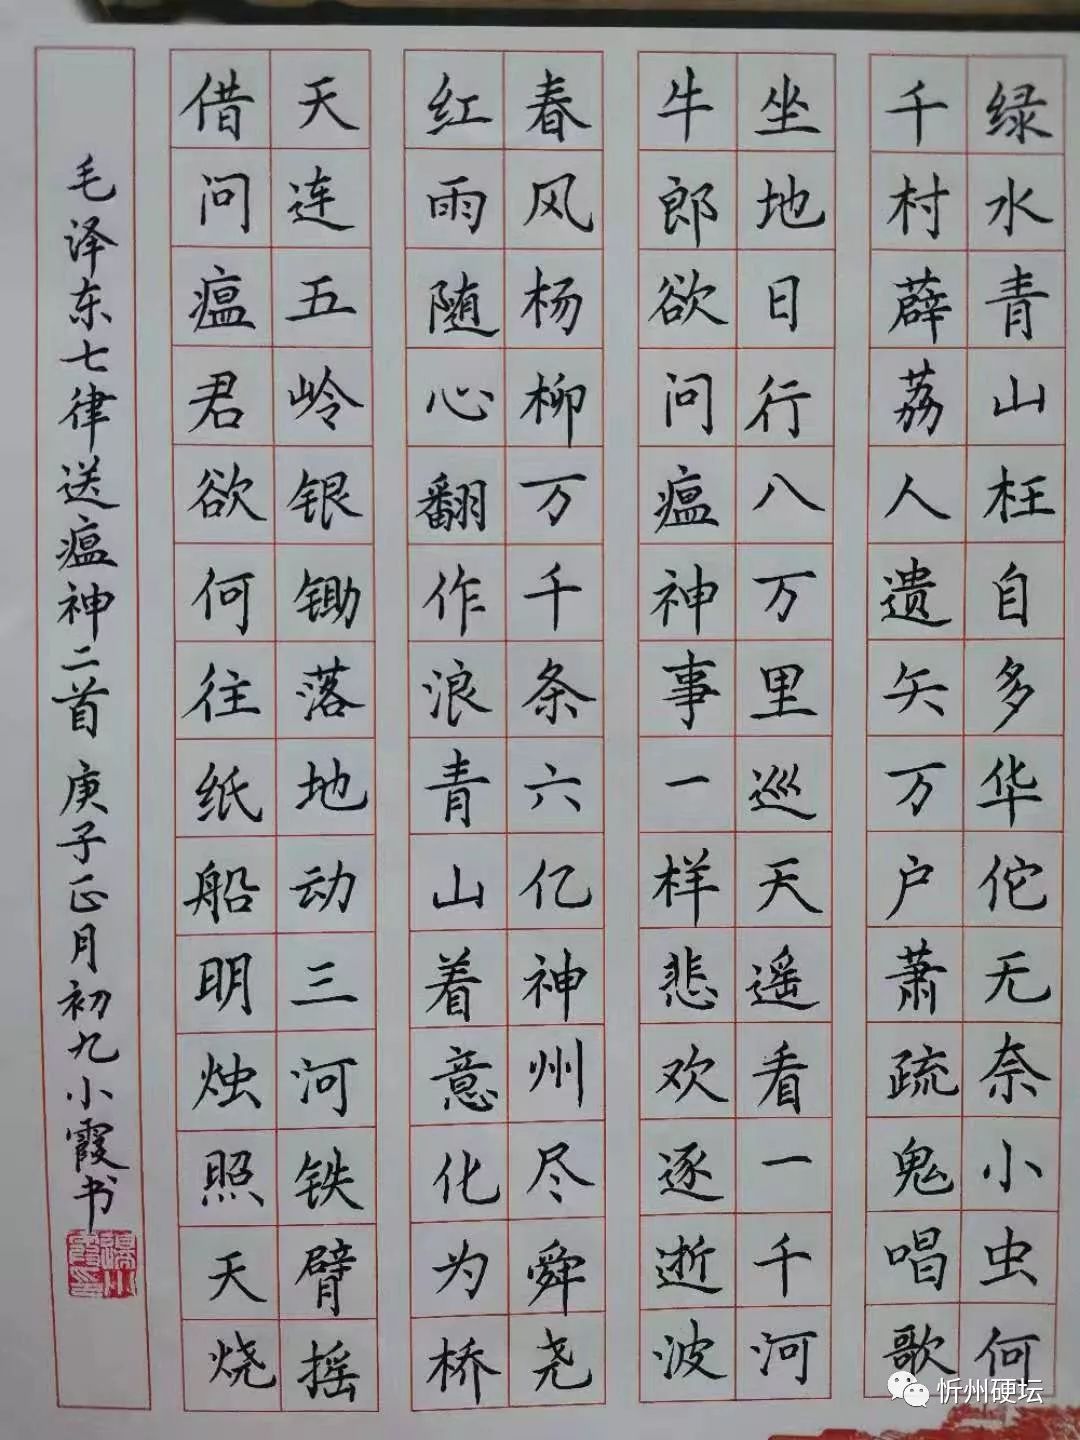 绿水青山枉自多华佗无奈小虫何
千村薜荔人遗矢万户萧疏鬼唱歌
坐地日行八万里巡天遥看一千河
牛郎欲问瘟神事一样悲欢逐逝波
春风杨柳万千条六亿神州尽舜尧
红雨随心翻作浪青山着意化为桥
天连五岭银锄落地动三河铁臂摇
借问瘟君欲何往纸船明烛照天烧
毛泽东七律送瘟神二首 庚子正月初九小霞书
忻州硬坛